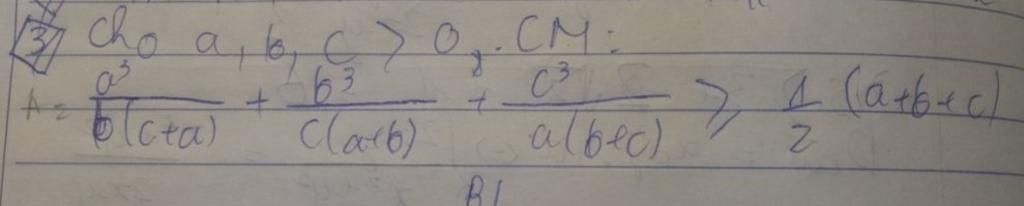 3) Cho a, b, c > 0. CM:
A = a³/b(c+a) + b³/c(a+b) + c³/a(b+c) ⩾ 1/2 (a+b+c)